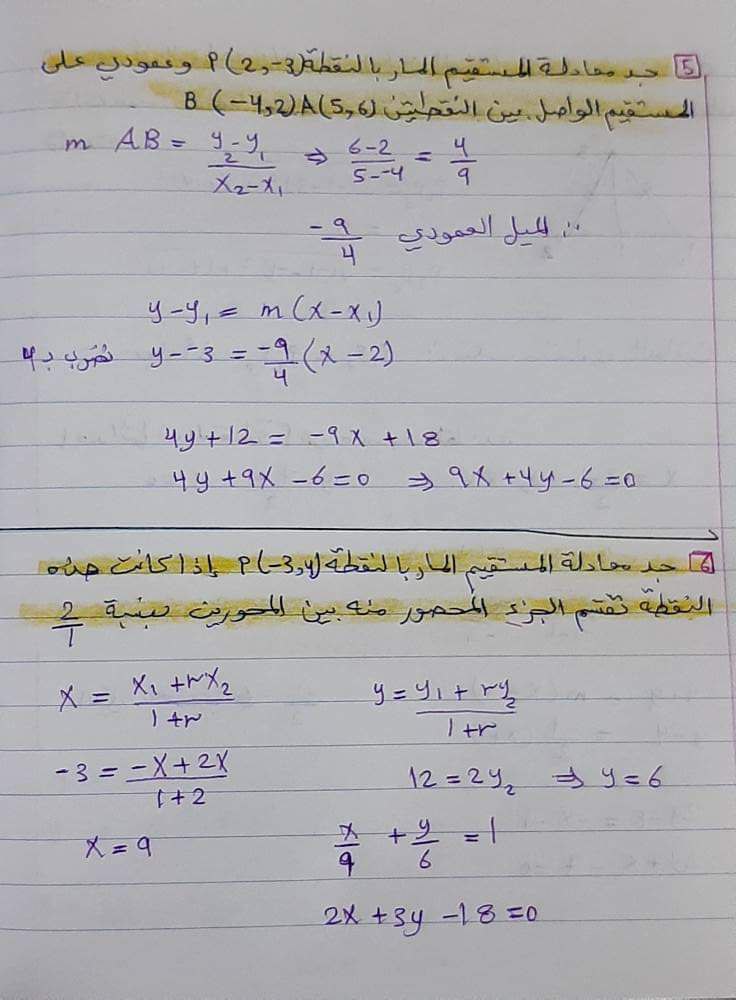 5 جد معادلة المستقيم المار بالنقطة P(2,-3) وعمودي على
المستقيم الواصل بين النقطتين B (-4,2) A(5,6)
m AB = (y₂-y₁)/(x₂-x₁) ⇒ (6-2)/(5--4) = 4/9
∴ الميل العمودي -9/4
y-y₁ = m(x-x₁)
y--3 = -9/4 (x-2) نضرب بـ 4
4y+12 = -9x+18
4y+9x-6=0 ⇒ 9x+4y-6=0
6 جد معادلة المستقيم المار بالنقطة P(-3,4) إذا كانت هذه
النقطة تقسم الجزء المحصور منه بين المحورين بنسبة 2/1
x = (x₁+rx₂)/(1+r) y = (y₁+ry₂)/(1+r)
-3 = (-x+2x)/(1+2) 12 = 2y₂ ⇒ y=6
x = 9 x/9 + y/6 = 1
2x+3y-18=0